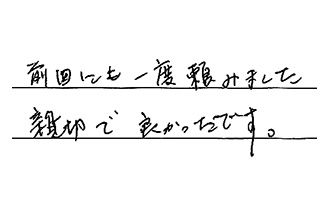 前回にも一度頼みました
親切で良かったです。